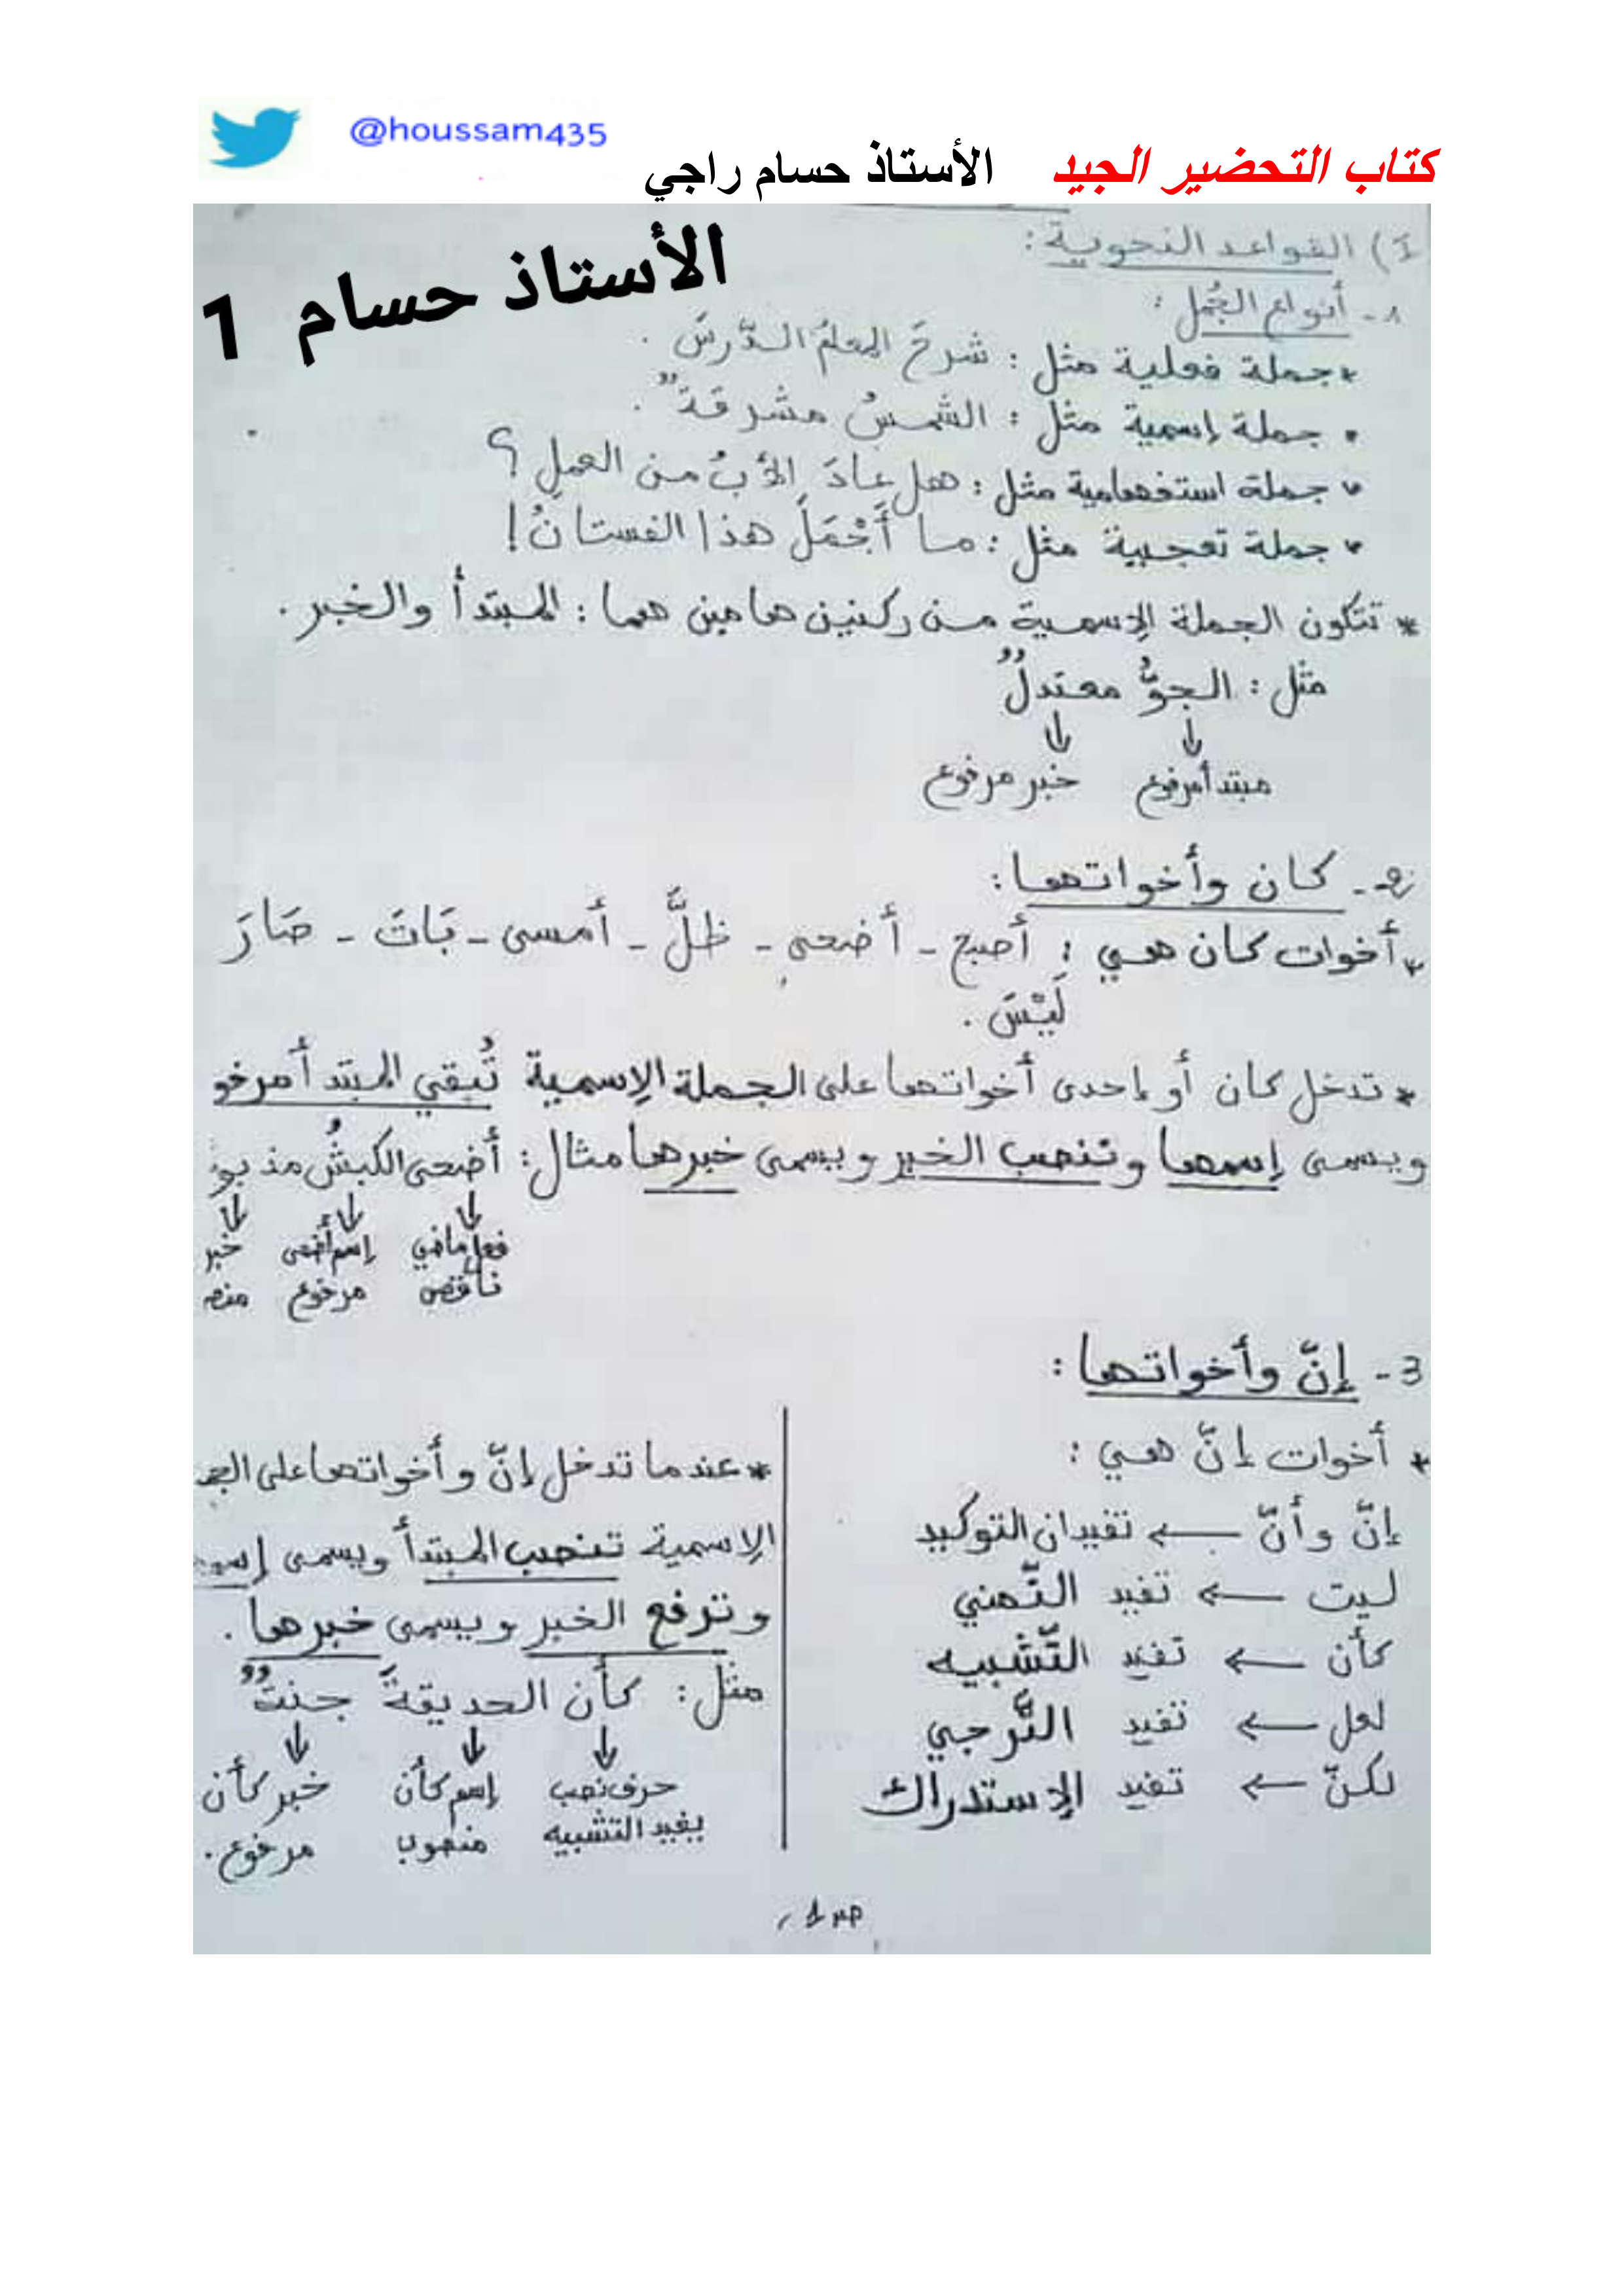 @houssam435
كتاب التحضير الجيد الأستاذ حسام راجي
الأستاذ حسام 1
I) القواعد النحوية :
1- أنواع الجُمل :
* جملة فعلية مثل : شرحَ المعلمُ الدَّرسَ .
• جملة إسمية مثل : الشمسُ مشرقةٌ .
• جملة استفهامية مثل : هل عادَ الأبُ من العملِ ؟
• جملة تعجبية مثل : ما أَجْمَلَ هذا الفستانُ !
* تتكون الجملة الإسمية من ركنين هامين هما : المبتدأ والخبر .
مثل : الجوُّ معتدلٌ
↓ ↓
مبتدأ مرفوع خبر مرفوع
2- كان وأخواتها :
* أخوات كان هي : أصبح - أضحى - ظلَّ - أمسى - بَاتَ - صَارَ
لَيْسَ .
* تدخل كان أو إحدى أخواتها على الجملة الإسمية تُبقي المبتدأ مرفو
ويسمى إسمها وتنصب الخبر ويسمى خبرها مثال : أضحى الكبشُ مذبو
↓ ↓ ↓
فعل ماضي إسم أضحى خبر
ناقص مرفوع منص
3- إنّ وأخواتها :
* أخوات إنّ هي :
إنّ وأنّ ← تفيدان التوكيد
ليت ← تفيد التّمني
كأن ← تفيد التّشبيه
لعل ← تفيد التَّرجي
لكنّ ← تفيد الإستدراك
* عندما تدخل إنّ وأخواتها على الجم
الإسمية تنصب المبتدأ ويسمى إسمه
وترفع الخبر ويسمى خبرها .
مثل : كأن الحديقةَ جنتٌ
↓ ↓ ↓
حرف نصب إسم كأن خبر كأن
يفيد التشبيه منصوب مرفوع .
ص 1